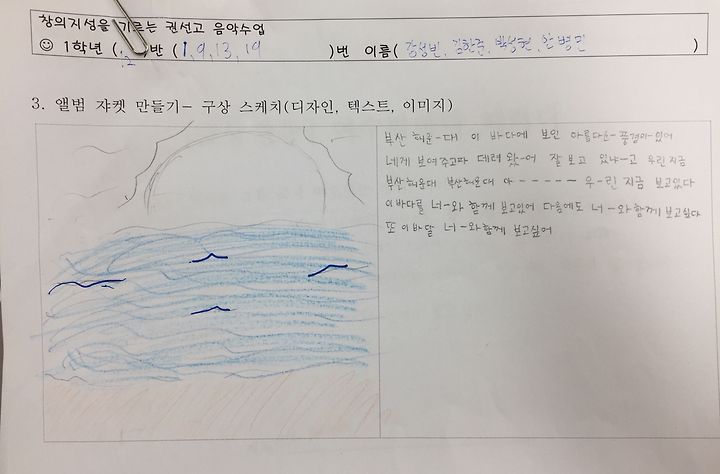 창의지성을 기르는 권선고 음악수업
☺ 1학년 ( 2 반 ( 1, 9, 13, 19 )번 이름( 강성빈, 김한준, 박성현, 안병민 )
3. 앨범 쟈켓 만들기- 구상 스케치(디자인, 텍스트, 이미지)
부산 해운-대 이 바다에 보인 아름다운-풍경이-있어
네게 보여주고파 데려 왔-어 잘 보고 있나-고 우린지금
부산해운대 부산해운대 아 ------ 우-린 지금 보고있다
이바다를 너-와 함께 보고있어 다음에도 너-와함께 보고싶다
또 이바달 너-와함께 보고싶어